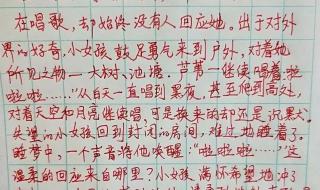 在唱歌，却始终没有人回应她。出于对外
界的好奇，小女孩鼓足勇气来到户外，对着她
所见之物——大树、池塘、芦苇——继续唱着“啦
啦啦……”从白天一直唱到黑夜，甚至爬到高处，
对着天空和月亮继续唱，可是换来的却还是沉默！
失望的小女孩回到封闭的房间，难过地睡着了。
睡梦中，一个声音将他唤醒：“啦啦啦……”这
温柔的回应来自哪里？小女孩满怀希望地冲了